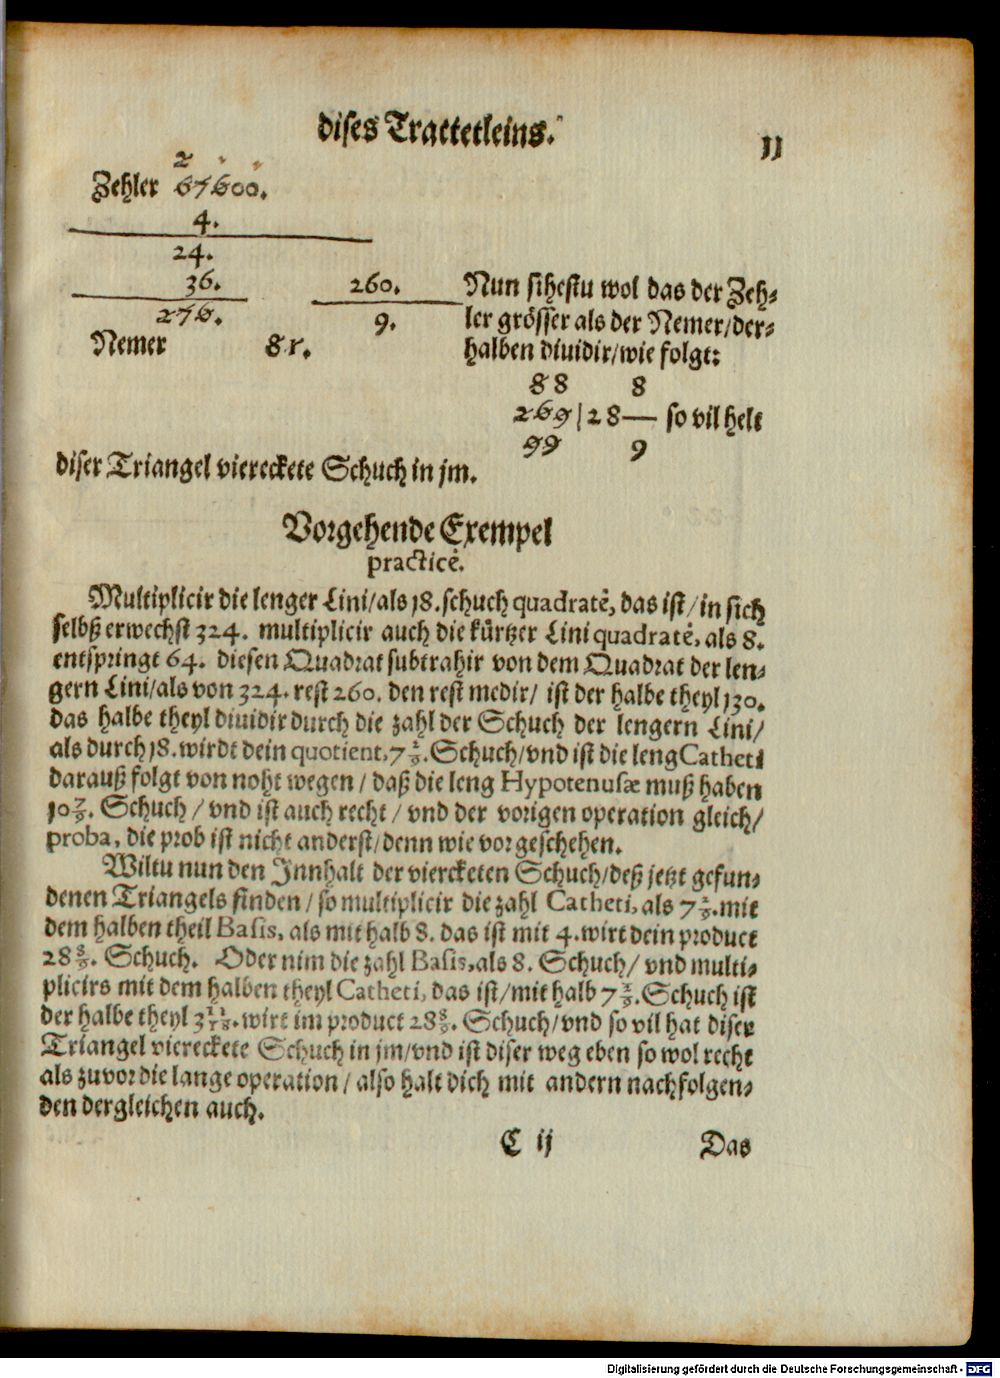 dises Tractetleins.
11
2
Zehler 67600.
4.
24.
36.
276.
Nemer 81.
260.
9.
Nun sihestu wol das der Zeh-
ler grösser als der Nemer/der-
halben diuidir/wie folgt:
88 8
269|28— so vil helt
99 9
diser Triangel viereckete Schuch in jm.
Vorgehende Exempel
practicè.
Multiplicir die lenger Lini/als 18.schuch quadratè, das ist/in sich
selbß erwechst 324. multiplicir auch die kürtzer Lini quadratè, als 8.
entspringt 64. diesen Quadrat subtrahir von dem Quadrat der len-
gern Lini/als von 324. rest 260. den rest medir/ ist der halbe theyl 130.
das halbe theyl diuidir durch die zahl der Schuch der lengern Lini/
als durch 18. wirdt dein quotient, 7 2/9. Schuch/vnd ist die leng Catheti
darauß folgt von noht wegen/ daß die leng Hypotenusæ muß haben
10 7/9. Schuch/ vnd ist auch recht/ vnd der vorigen operation gleich/
proba, die prob ist nicht anderst/denn wie vorgeschehen.
Wiltu nun den Jnnhalt der vierecketen Schuch/deß jetzt gefun-
denen Triangels finden/ so multiplicir die zahl Catheti, als 7 2/9. mit
dem halben theil Basis, als mit halb 8. das ist mit 4. wirt dein product
28 8/9. Schuch. Oder nim die zahl Basis, als 8. Schuch/ vnd multi-
plicirs mit dem halben theyl Catheti, das ist/mit halb 7 2/9. Schuch ist
der halbe theyl 3 11/18. wirt im product 28 8/9. Schuch/vnd so vil hat diser
Triangel viereckete Schuch in jm/vnd ist diser weg eben so wol recht
als zuvor die lange operation/ also halt dich mit andern nachfolgen-
den dergleichen auch.
C ij
Das
Digitalisierung gefördert durch die Deutsche Forschungsgemeinschaft - DFG